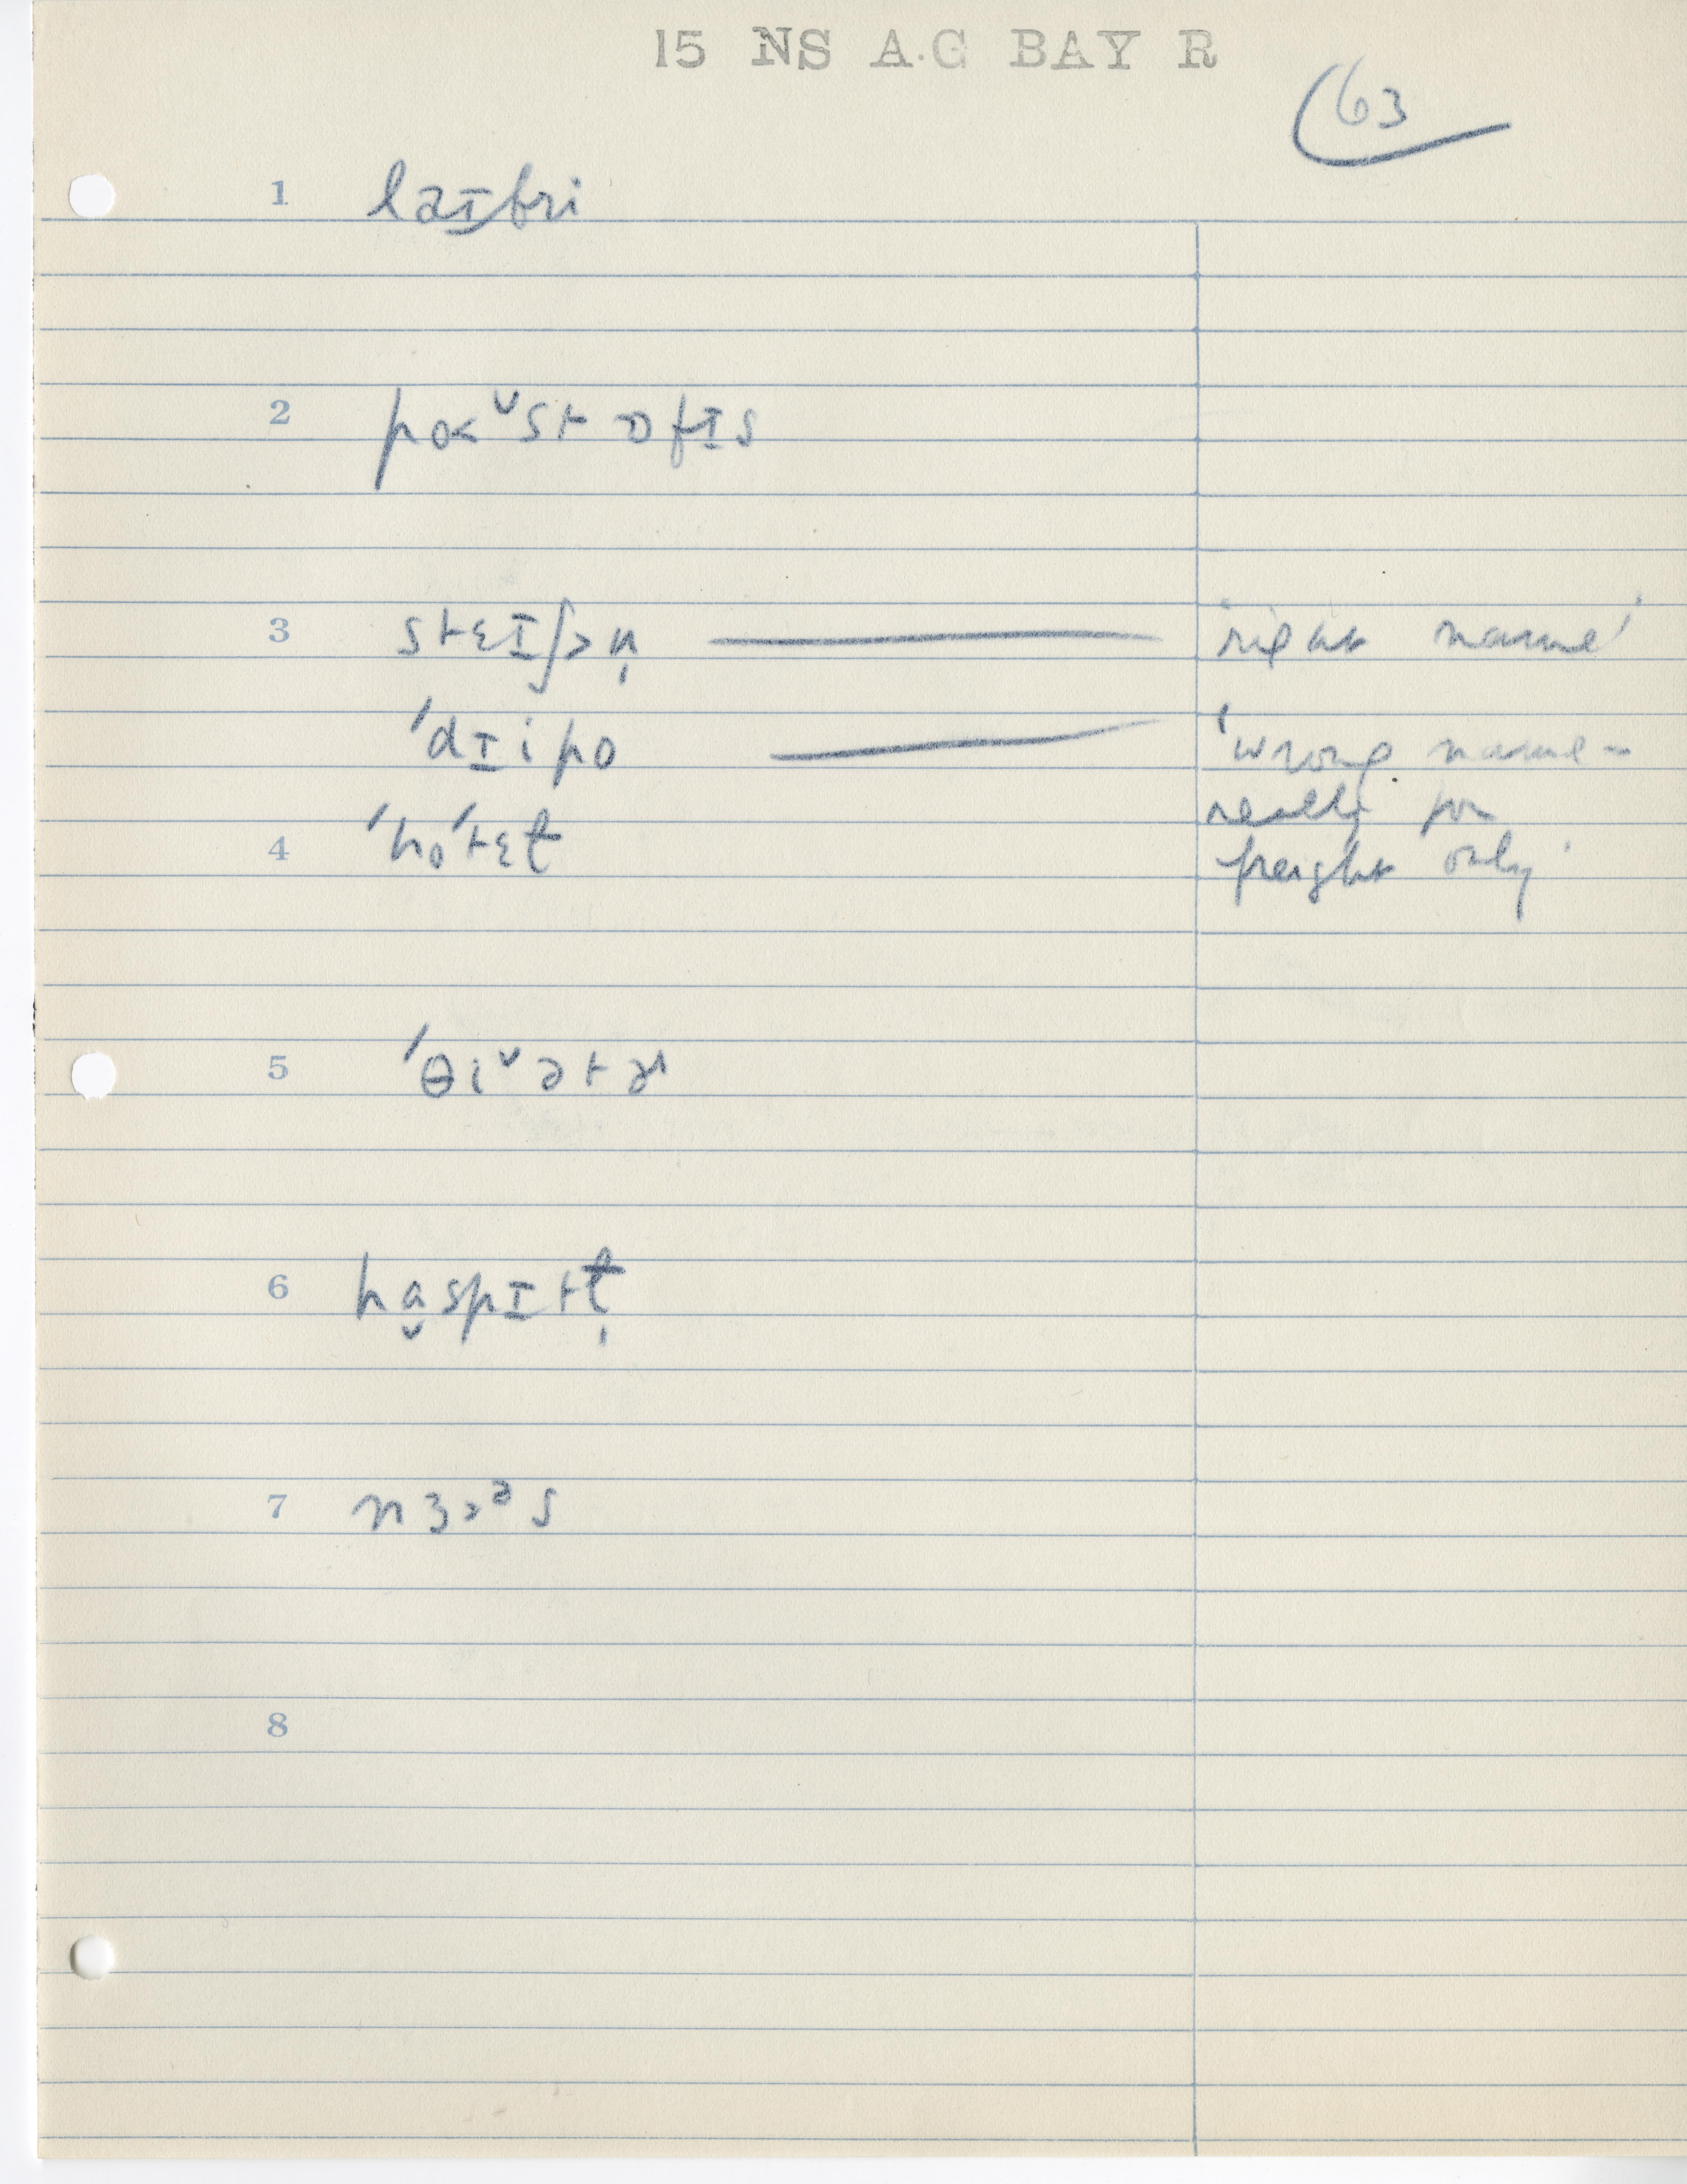 15 NS A.G BAY R
63
1 laɪbri
2 po˂ᵛst ɒfɪs
3 stɛɪʃ>n̩ ——— 'right name'
'dɪipo ——— 'wrong name –
really for
4 'ho'tɛɫ freight only'
5 'θiᵛətɚ
6 hɑ̬spɪtɫ̩
7 nɜ>ᵊs
8